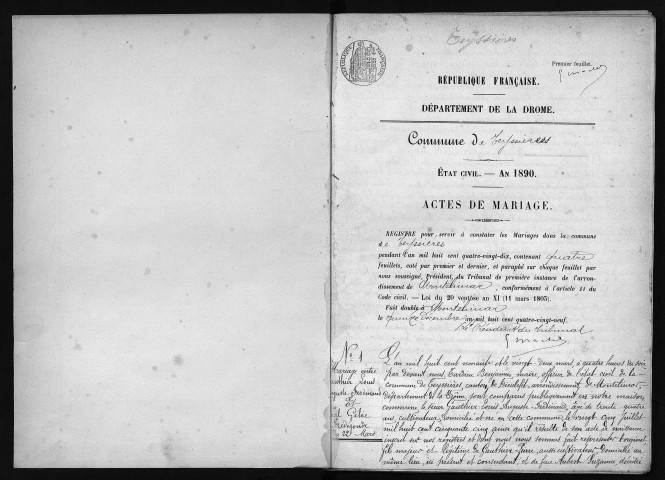 Teyssières
Premier feuillet.
RÉPUBLIQUE FRANÇAISE
RÉPUBLIQUE FRANÇAISE.
DÉPARTEMENT DE LA DROME.
Commune de Teyssières
ÉTAT CIVIL. — AN 1890.
ACTES DE MARIAGE.
REGISTRE pour servir à constater les Mariages dans la commune
de Teyssières
pendant l'an mil huit cent quatre-vingt-dix, contenant quatre
feuillets, coté par premier et dernier, et paraphé sur chaque feuillet par
nous soussigné, Président du Tribunal de première instance de l'arron-
dissement de Montélimar, conformément à l'article 41 du
Code civil. — Loi du 20 ventôse an XI (11 mars 1803).
Fait double à Montélimar
le quinze Décembre an mil huit cent quatre-vingt-neuf.
Le Président du Tribunal
No 1
Mariage entre
Gauthier Louis
Auguste Ferdinand
Et
22 Mars
L'an mil huit cent nonante et le vingt deux mars, à quatre heures du soir
par devant nous Tardieu Benjamin, maire, officier de l'état civil de la
commune de Teyssières, canton de Dieulefit, arrondissement de Montélimar,
département de la Drôme, sont comparus publiquement en notre maison
commune, le sieur Gauthier Louis Auguste Ferdinand, âgé de trente quatre
ans cultivateur, domicilié et né en cette commune le vingt cinq juillet
mil huit cent cinquante cinq ainsi qu'il résulte de son acte de naissance
inscrit sur nos registres et dont nous nous sommes fait représenter l'original,
fils majeur et légitime de Gauthier Pierre, aussi cultivateur, domicilié au
même lieu, ici présent et consentant, et de feue Aubert Suzanne, décédée